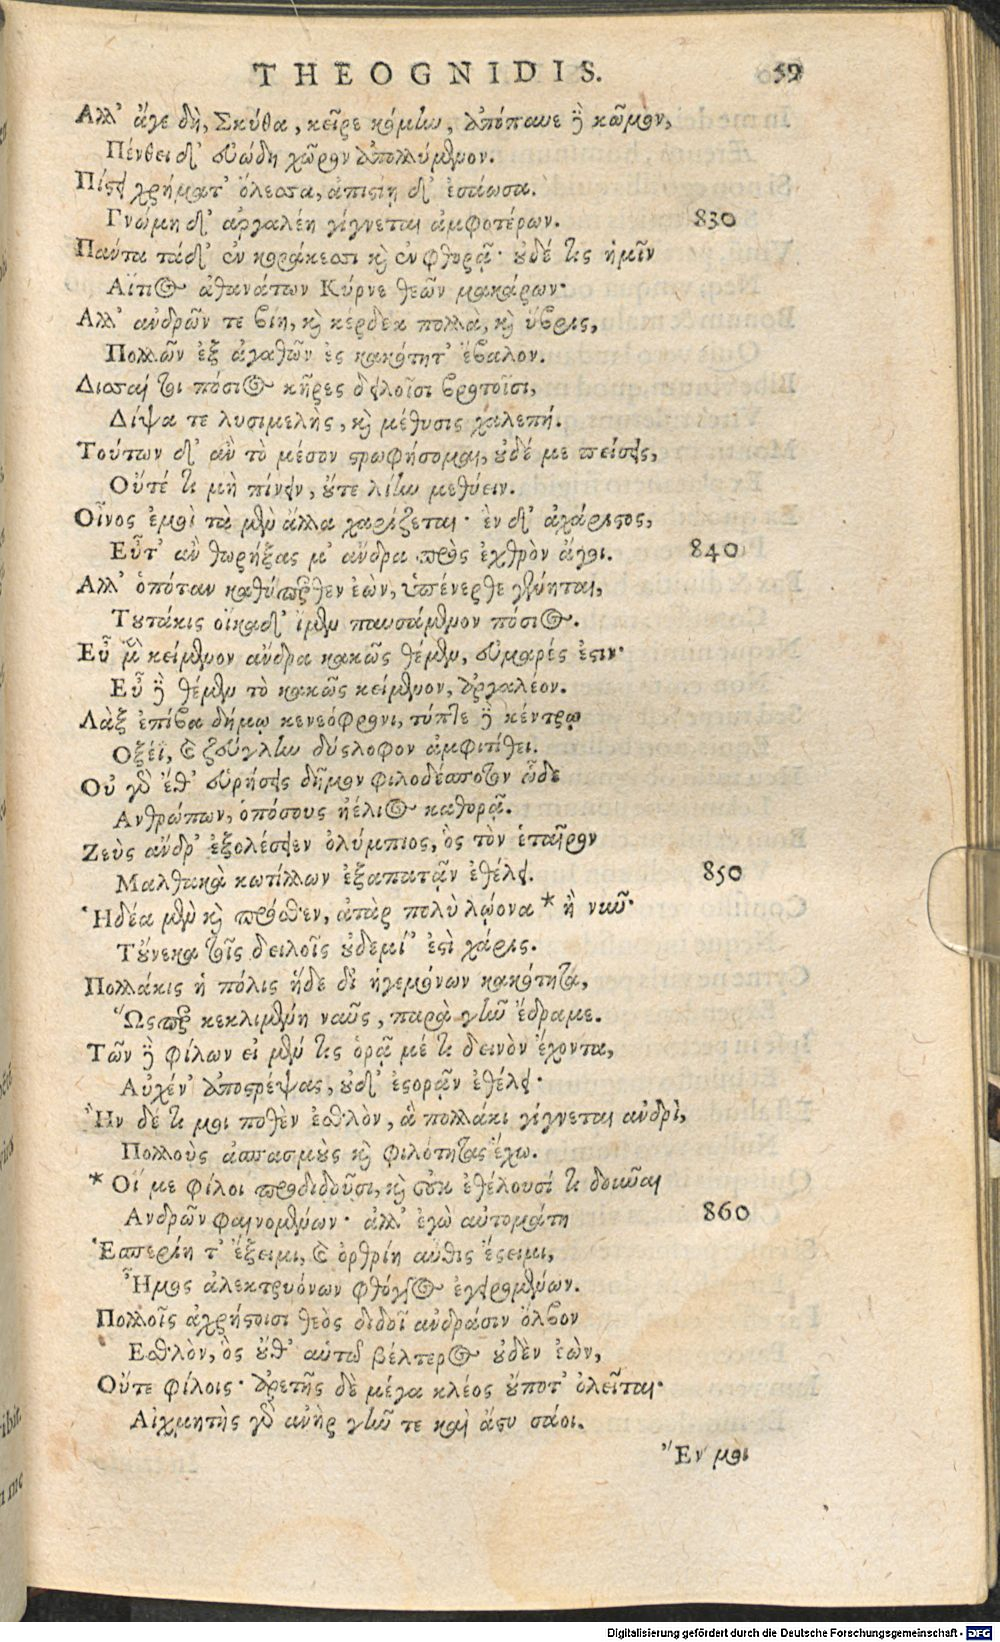 THEOGNIDIS. 59
Αλλ' ἄγε δὴ, Σκύθα, κεῖρε κόμην, ἀπόπαυε δὲ κῶμον,
Πένθει δ' εὐώδη χῶρον ἀπολλύμενον.
Πίστει χρήματ' ὄλεσσα, ἀπιστίη δ' ἐσάωσα.
Γνώμη δ' ἀργαλέη γίγνεται ἀμφοτέρων. 830
Πάντα τάδ' ἐν κοράκεσσι καὶ ἐν φθορᾷ· οὐδέ τις ἡμῖν
Αἴτιος ἀθανάτων Κύρνε θεῶν μακάρων·
Αλλ' ἀνδρῶν τε βίη, καὶ κέρδεα πολλὰ, καὶ ὕβρις,
Πολλῶν ἐξ ἀγαθῶν ἐς κακότητ' ἔβαλον.
Δισσαί τοι πόσιος κῆρες δειλοῖσι βροτοῖσι,
Δίψα τε λυσιμελὴς, καὶ μέθυσις χαλεπή.
Τούτων δ' ἂν τὸ μέσον στρωφήσομαι, οὐδέ με πείσεις,
Οὔτέ τι μὴ πίνειν, οὔτε λίην μεθύειν.
Οἶνος ἐμοὶ τὰ μὲν ἄλλα χαρίζεται· ἓν δ' ἀχάριστος,
Εὖτ' ἂν θωρήξας μ' ἄνδρα πρὸς ἐχθρὸν ἄγοι. 840
Αλλ' ὁπόταν καθύπερθεν ἐὼν, ὑπένερθε γένηται,
Τουτάκις οἴκαδ' ἴμεν παυσάμενον πόσιος.
Εὖ μὲν κείμενον ἄνδρα κακῶς θέμεν, εὐμαρές ἐστιν·
Εὖ δὲ θέμεν τὸ κακῶς κείμενον, ἀργαλέον.
Λὰξ ἐπίβα δήμῳ κενεόφρονι, τύπτε δὲ κέντρῳ
Οξέϊ, καὶ ζεύγλην δύσλοφον ἀμφιτίθει.
Οὐ γὰρ ἔθ' εὑρήσεις δῆμον φιλοδέσποτον ὧδε
Ανθρώπων, ὁπόσους ἠέλιος καθορᾷ.
Ζεὺς ἄνδρ' ἐξολέσειεν ὀλύμπιος, ὃς τὸν ἑταῖρον
Μαλθακὰ κωτίλλων ἐξαπατᾶν ἐθέλει. 850
Ἡδέα μὲν καὶ πρόσθεν, ἀτὰρ πολὺ λῴονα * ἢ νῦν·
Τούνεκα τοῖς δειλοῖς οὐδεμί' ἐστὶ χάρις.
Πολλάκις ἡ πόλις ἥδε δι' ἡγεμόνων κακότητα,
Ὥσπερ κεκλιμένη ναῦς, παρὰ γῆν ἔδραμε.
Τῶν δὲ φίλων εἰ μέν τις ὁρᾷ μέ τι δεινὸν ἔχοντα,
Αὐχέν' ἀποστρέψας, οὐδ' ἐσορᾶν ἐθέλει·
Ἢν δέ τι μοι ποθὲν ἐσθλὸν, ἃ πολλάκι γίγνεται ἀνδρὶ,
Πολλοὺς ἀσπασμοὺς καὶ φιλότητας ἔχω.
* Οἵ με φίλοι προδιδοῦσι, καὶ οὐκ ἐθέλουσί τι δοῦναι
Ανδρῶν φαινομένων· ἀλλ' ἐγὼ αὐτομάτη 860
Ἑσπερίη τ' ἔξειμι, καὶ ὀρθρίη αὖθις ἔσειμι,
Ἦμος ἀλεκτρυόνων φθόγγος ἐγειρομένων.
Πολλοῖς ἀχρήστοισι θεὸς διδοῖ ἀνδράσιν ὄλβον
Εσθλὸν, ὃς οὔθ' αὑτῷ βέλτερος οὐδὲν ἐὼν,
Οὔτε φίλοις· ἀρετῆς δὲ μέγα κλέος οὔποτ' ὀλεῖται·
Αἰχμητὴς γὰρ ἀνὴρ γῆν τε καὶ ἄστυ σάοι.
Ἔν μοι
Digitalisierung gefördert durch die Deutsche Forschungsgemeinschaft - DFG